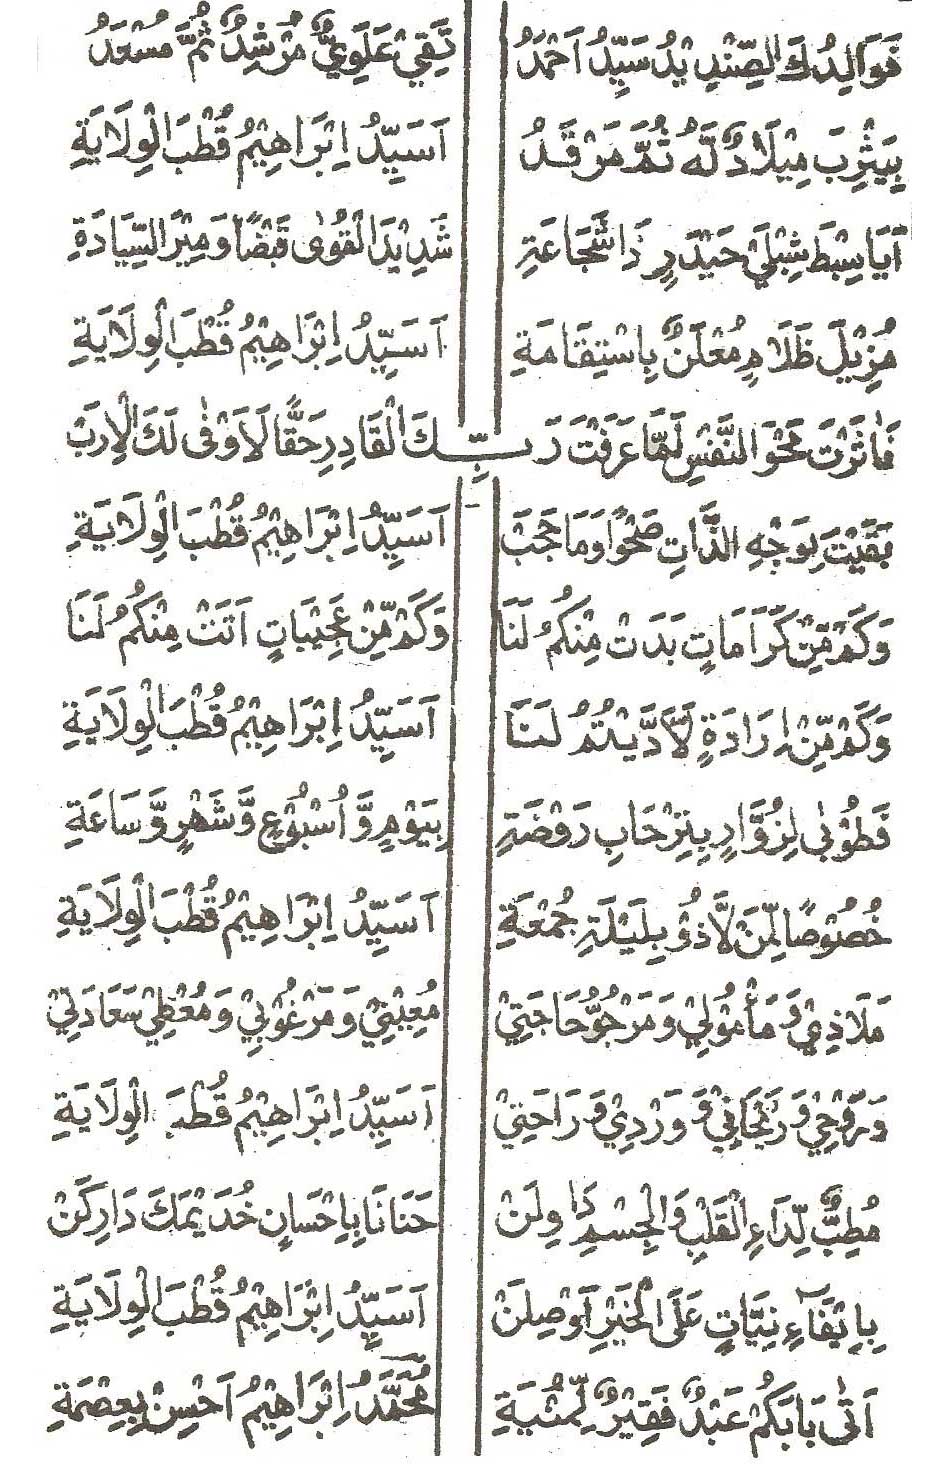 فَوَالِدُكَ الصِّنْدِيْدُ سَيِّدُ اَحْمَدُ تَقِيْ عَلَوِيٌّ مُرْشِدٌ ثُمَّ مُسْعَدُ
بِيَثْرِبَ مِيْلَادٌ لَّهُ ثُمَّ مَرْقَدُ اَسَيِّدُ اِبْرَاهِيْمُ قُطْبَ الْوِلَايَةِ
اَيَا سِبْطَ شِبْلَيْ حَيْدَرٍ ذَا شَجَاعَةِ شَدِيْدَ الْقُوٰى قَبْضًا وَمِيْرَ السِّيَادَةِ
مُزِيْلَ ظَلَامٍ مُعْلَنٌ بِاسْتِقَامَةِ اَسَيِّدُ اِبْرَاهِيْمُ قُطْبَ الْوِلَايَةِ
فَاٰثَرْتَ مَحْوَ النَّفْسِ لَمَّا عَرَفْتَ رَبِّكَ الْقَادِرِ حَقًّا لَاَوْفٰى لَكَ الْاِرَبْ
بَقَيْتَ بِوَجْهِ الذَّاتِ صَحْوًا وَمَا حَجَبْ اَسَيِّدُ اِبْرَاهِيْمُ قُطْبَ الْوِلَايَةِ
وَكَمْ مِّنْ كَرَامَاتٍ بَدَتْ مِنْكُمُ لَنَا وَكَمْ مِّنْ عَجِيْبَاتٍ اَتَتْ مِنْكُمُ لَنَا
وَكَمْ مِّنْ اِرَادَةٍ لَّاَدَّيْتُمُ لَنَا اَسَيِّدُ اِبْرَاهِيْمُ قُطْبَ الْوِلَايَةِ
فَطُوْبٰى لِزُوَّارٍ بِتِرْحَابِ رَوْضَةٍ بِيَوْمٍ وَّاُسْبُوْعٍ وَّشَهْرٍ وَّسَاعَةِ
خُصُوْصًا لِّمَنْ لَّاذُوْ بِلَيْلَةِ جُمْعَةِ اَسَيِّدُ اِبْرَاهِيْمُ قُطْبَ الْوِلَايَةِ
مَلَاذِيْ وَمَأْمُوْلِيْ وَمَرْجُوُّ حَاجَتِيْ مُعِيْنِيْ وَمَرْغُوْبِيْ وَمُعْطِيْ سَعَادَتِيْ
وَرَوْحِيْ وَرَيْحَانِيْ وَوَرْدِيْ وَرَاحَتِيْ اَسَيِّدُ اِبْرَاهِيْمُ قُطْبَ الْوِلَايَةِ
مُطِبٌّ لِّدَاءِ الْقَلْبِ وَالْجِسْمِ دَاوِلَنْ حَنَانًا بِاِحْسَانٍ خُدَيْمَكَ دَارِكَنْ
بِاِيْفَاءِ نِيَّاتٍ عَلَى الْخَيْرِ اَوْصِلَنْ اَسَيِّدُ اِبْرَاهِيْمُ قُطْبَ الْوِلَايَةِ
اَتٰى بَابَكُمْ عَبْدٌ فَقِيْرٌ لِّمُنْيَةِ مُحَمَّدُ اِبْرَاهِيْمُ اَحْسِنْ بِعِصْمَةِ